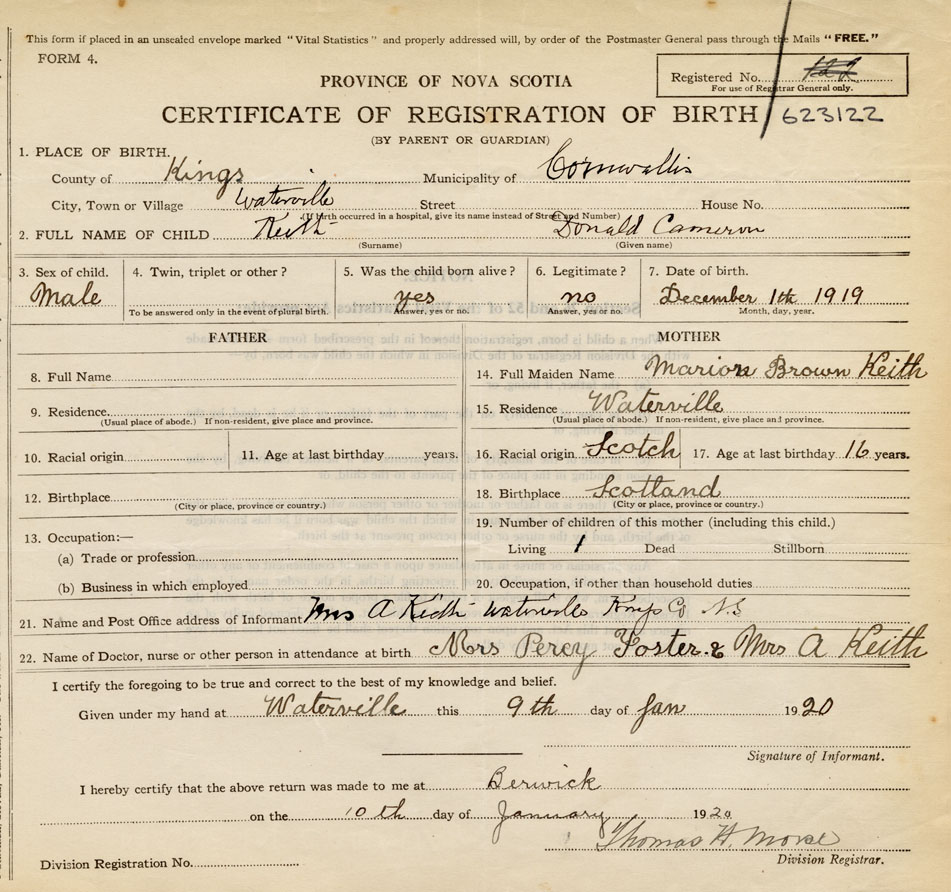 This form if placed in an unsealed envelope marked "Vital Statistics" and properly addressed will, by order of the Postmaster General pass through the Mails "FREE."
FORM 4.
PROVINCE OF NOVA SCOTIA
Registered No. 122
For use of Registrar General only.
CERTIFICATE OF REGISTRATION OF BIRTH 623122
(BY PARENT OR GUARDIAN)
1. PLACE OF BIRTH.
County of Kings Municipality of Cornwallis
City, Town or Village Waterville Street House No.
(If birth occurred in a hospital, give its name instead of Street and Number)
2. FULL NAME OF CHILD Keith Donald Cameron
(Surname) (Given name)
3. Sex of child. 4. Twin, triplet or other? 5. Was the child born alive? 6. Legitimate? 7. Date of birth.
Male yes no December 1th 1919
To be answered only in the event of plural birth. Answer, yes or no. Answer, yes or no. Month, day, year.
FATHER MOTHER
8. Full Name 14. Full Maiden Name Marion Brown Keith
9. Residence. 15. Residence Waterville
(Usual place of abode.) If non-resident, give place and province. (Usual place of abode.) If non-resident, give place and province.
10. Racial origin 11. Age at last birthday years. 16. Racial origin Scotch 17. Age at last birthday 16 years.
12. Birthplace 18. Birthplace Scotland
(City or place, province or country.) (City or place, province or country.)
13. Occupation:— 19. Number of children of this mother (including this child.)
(a) Trade or profession Living 1 Dead Stillborn
(b) Business in which employed 20. Occupation, if other than household duties
21. Name and Post Office address of Informant Mrs A Keith Waterville Kings Co N.S
22. Name of Doctor, nurse or other person in attendance at birth Mrs Percy Foster & Mrs A Keith
I certify the foregoing to be true and correct to the best of my knowledge and belief.
Given under my hand at Waterville this 9th day of Jan 1920
Signature of Informant.
I hereby certify that the above return was made to me at Berwick
on the 10th day of January 1920
Thomas H. Morse
Division Registration No. Division Registrar.